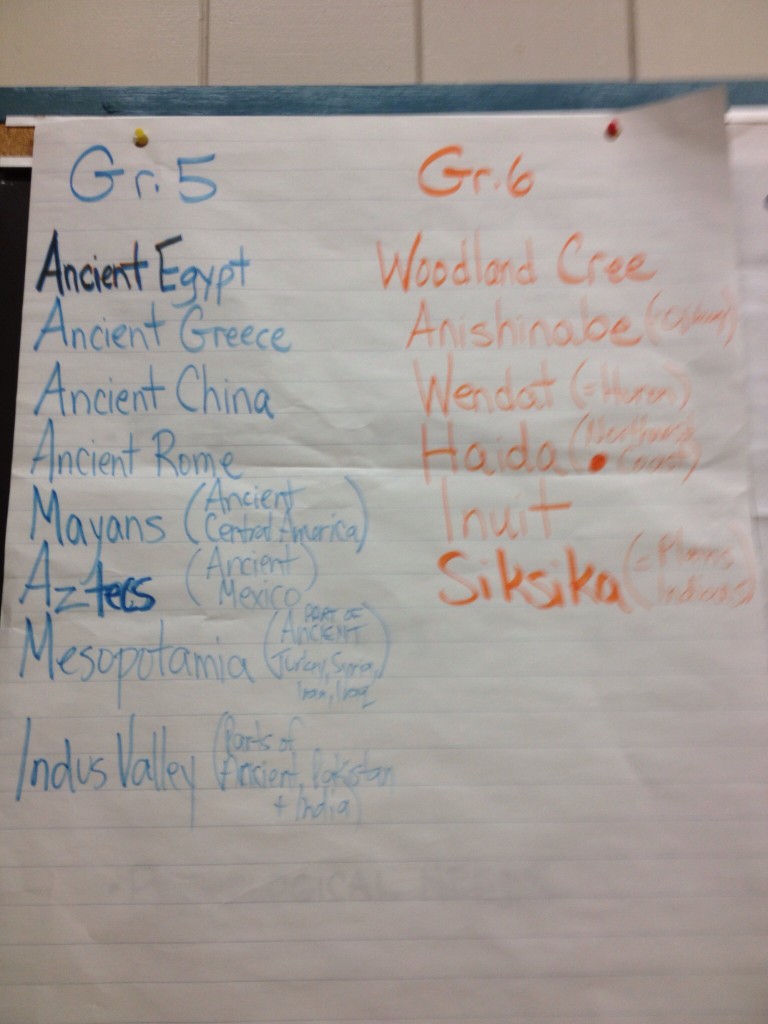 Gr. 5
Ancient Egypt
Ancient Greece
Ancient China
Ancient Rome
Mayans (Ancient
Central America)
Aztecs (Ancient
Mexico)
Mesopotamia (PART OF
ANCIENT
Turkey, Syria,
Iran, Iraq
Indus Valley (Parts of
Ancient Pakistan
+ India)
Gr. 6
Woodland Cree
Anishinabe
Wendat (=Huron)
Haida (Northwest
Coast)
Inuit
Siksika (=Plains
Indians)